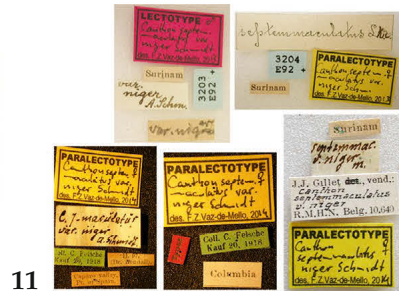 LECTOTYPE
Canthon septem-
maculatus var.
niger Schmidt
des. F.Z.Vaz-de-Mello, 2014
Surinam
var.
niger
A. Schm.
3203
E92 +
var. niger
septemmaculatus
3204
E92 +
Surinam
PARALECTOTYPE ♀
Canthon septem-
maculatus var.
niger Schm.
des. F.Z.Vaz-de-Mello, 2014
PARALECTOTYPE ♀
Canthon septem-
maculatus var.
niger Schmidt
des. F.Z.Vaz-de-Mello, 2014
C. 7-maculatus
var. niger
A. Schmidt
Coll. C. Felsche
Kauf 20, 1918
PARALECTOTYPE ♀
Canthon septem-
maculatus var.
niger Schmidt
des. F.Z.Vaz-de-Mello, 2014
Coll. C. Felsche
Kauf 20, 1918
Columbia
Surinam
septemmac.
v. niger
m.
J.J. Gillet det., vend.:
canthon
septemmaculatus
v. niger
R.M.H.N. Belg. 10,649
PARALECTOTYPE
Canthon
septemmaculatus
niger Schmidt
des. F.Z.Vaz-de-Mello, 2014
11